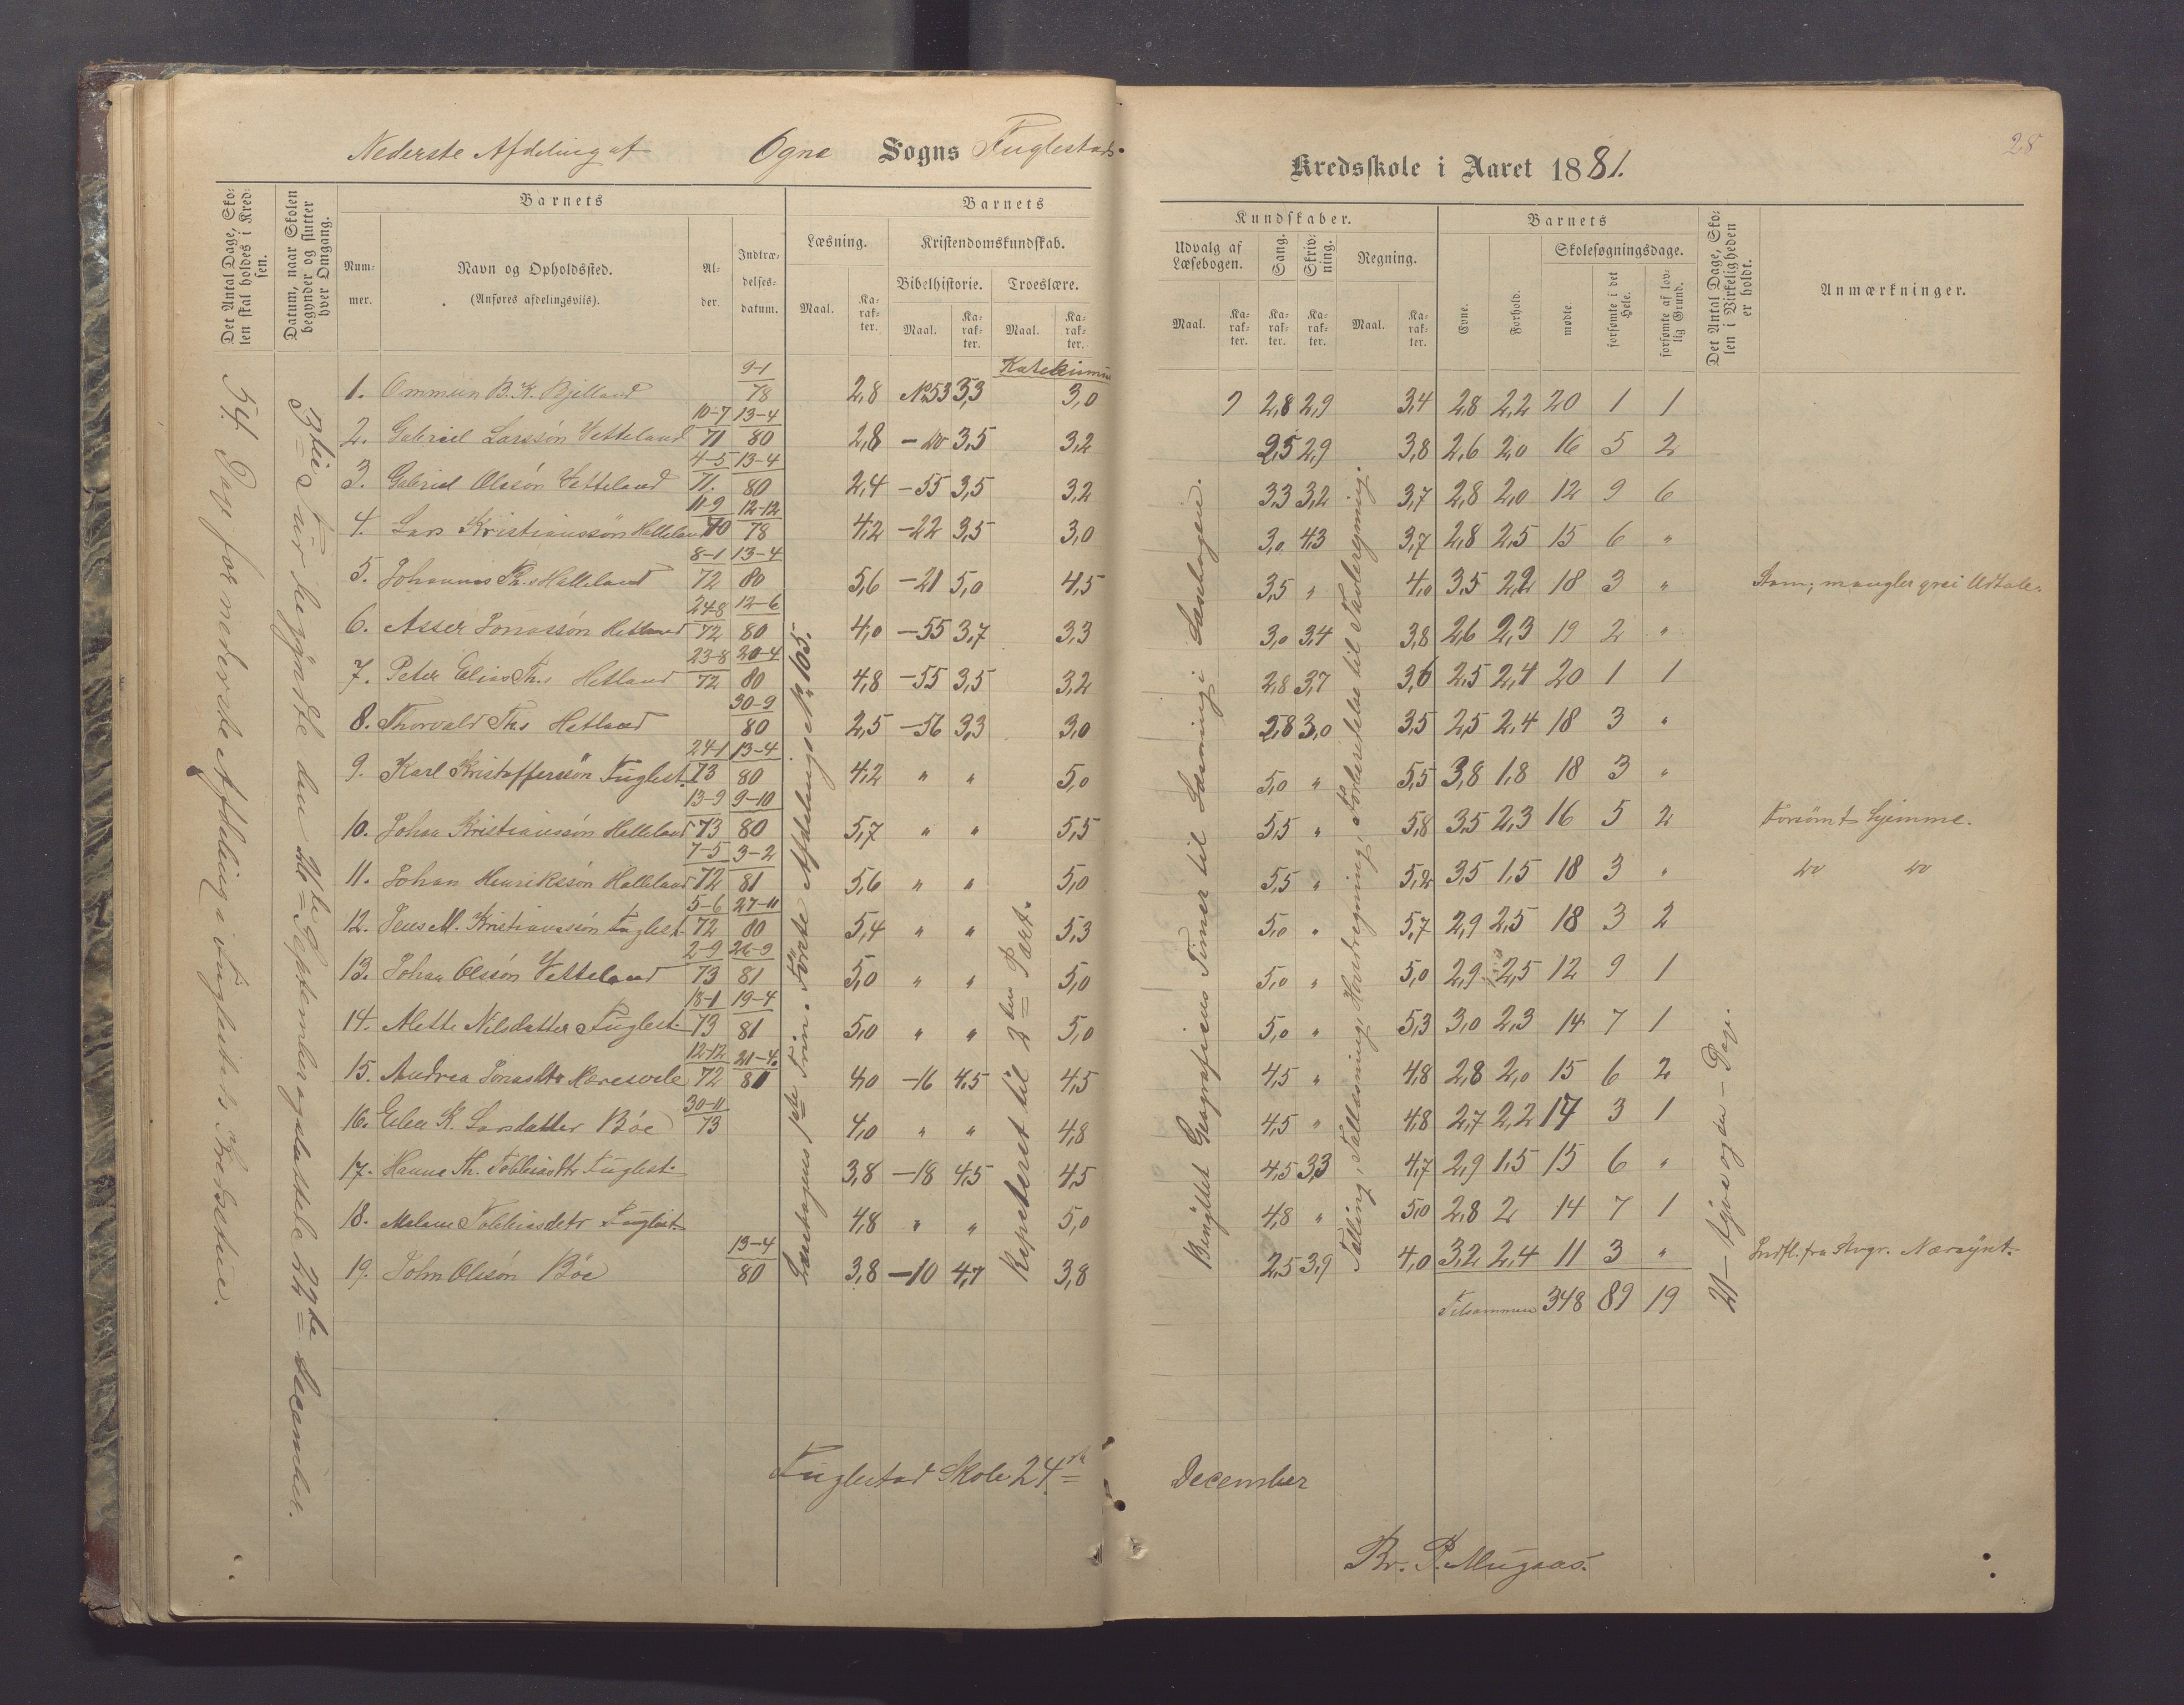 28
Nederste Afdeling af Ogna Sogns Fuglestads Kredsskole i Aaret 1881.
Det Antal Dage, Skolen skal holdes i Kredsen.
Datum, naar Skolen begynder og slutter hver Omgang.
Barnets
Nummer.
Navn og Opholdssted.
(Anføres afdelingsviis).
Alder.
Indtrædelsesdatum.
Barnets
Læsning.
Kristendomskundskab.
Bibelhistorie.
Troeslære.
Maal.
Karakter.
Maal.
Karakter.
Maal.
Karakter.
Kundskaber.
Udvalg af Læsebogen.
Sang.
Skrivning.
Regning.
Maal.
Karakter.
Karakter.
Karakter.
Maal.
Karakter.
Barnets
Evne.
Forhold.
Skolesøgningsdage.
mødte.
forsømte i det Hele.
forsømte af lovlig Grund.
Det Antal Dage, Skolen i Virkeligheden er holdt.
Anmærkninger.
54 Dage for nederste Afdeling i Fuglestads Kredsskole.
3die Tur begyndte den September og sluttede 24de December.
Læsebogens 1ste Trin. Förste Afdeling No 105.
Repeteret til 2den Part.
Benyttet Geografiens Timer til Læsning i Læsebogen.
Tælling, Tallæsning, Hovedregning, Forberedelse til Tavleregning.
21 – og – Dage.
1. Ommun B. K. Bjelland 9-1 78 2,8 No 53 3,3 3,0 2,8 2,9 3,4 2,8 2,2 20 1 1
2. Gabriel Larssön Vetteland 10-7 71 13-4 80 2,8 – do 3,5 3,2 2,5 2,9 3,8 2,6 2,0 16 5 2
3. Gabriel Olssön Vetteland 4-5 71. 13-4 80 2,4 – 55 3,5 3,2 3,3 3,2 3,7 2,8 2,0 12 9 6
4. Lars Kristianssön Halleland 11-9 70 12-12 78 4,2 – 22 3,5 3,0 3,0 4,3 3,7 2,8 2,5 15 6 "
5. Johannes Th.s Halleland 8-1 72 13-4 80 5,6 – 21 5,0 4,5 3,5 " 4,0 3,5 2,2 18 3 " Stam; mangler grei Udtale.
6. Asser Jonassön Hetland 24-8 72 12-6 80 4,0 – 55 3,7 3,3 3,0 3,4 3,8 2,6 2,3 19 2 "
7. Peter Elias Th.s Hetland 23-8 72 20-4 80 4,8 – 55 3,5 3,2 2,8 3,7 3,6 2,5 2,4 20 1 1
8. Thorvald Th.s Hetland 30-9 80 2,5 – 56 3,3 3,0 2,8 3,0 3,5 2,5 2,4 18 3 "
9. Karl Kristofferssön Fuglest. 24-1 73 13-4 80 4,2 " " 5,0 5,0 " 5,5 3,8 1,8 18 3 "
10. Johan Kristianssön Halleland 13-9 73 9-10 80 5,7 " " 5,5 5,5 " 5,8 3,5 2,3 16 5 2 Forsömt hjemme.
11. Johan Henrikssön Halleland 7-5 72 3-2 81 5,6 " " 5,0 5,5 " 5,2 3,5 1,5 18 3 " do do
12. Jens M. Kristianssön Fuglest. 5-6 72 27-11 80 5,4 " " 5,3 5,0 " 5,7 2,9 2,5 18 3 2
13. Johan Olssön Vetteland 2-9 73 26-9 81 5,0 " " 5,0 5,0 " 5,0 2,9 2,5 12 9 1
14. Alette Nilsdatter Fuglest. 18-1 73 19-4 81 5,0 " " 5,0 5,0 " 5,3 3,0 2,3 14 7 1
15. Andrea Jonasdtr 12-12 72 21-4 81 4,0 – 16 4,5 4,5 4,5 " 4,8 2,8 2,0 15 6 2
16. K. Larsdatter Böe 30-11 73 4,0 " " 4,8 4,5 " 4,8 2,7 2,2 17 3 1
17. Hanna Th. Tobbiasdtr Fuglest. 3,8 – 18 4,5 4,5 4,5 3,3 4,7 2,9 1,5 15 6 "
18. Malene Tobbiasdtr Fuglest. 4,8 " " 5,0 4,8 " 5,0 2,8 2 14 7 1
19. John Olssön Böe 13-4 80 3,8 – 10 4,7 3,8 2,5 3,9 4,0 3,2 2,4 11 3 " Indfl. fra Nærsynt.
Tilsammen 348 89 19
Fuglestad Skole 24de December
Br. P. Mugaas.